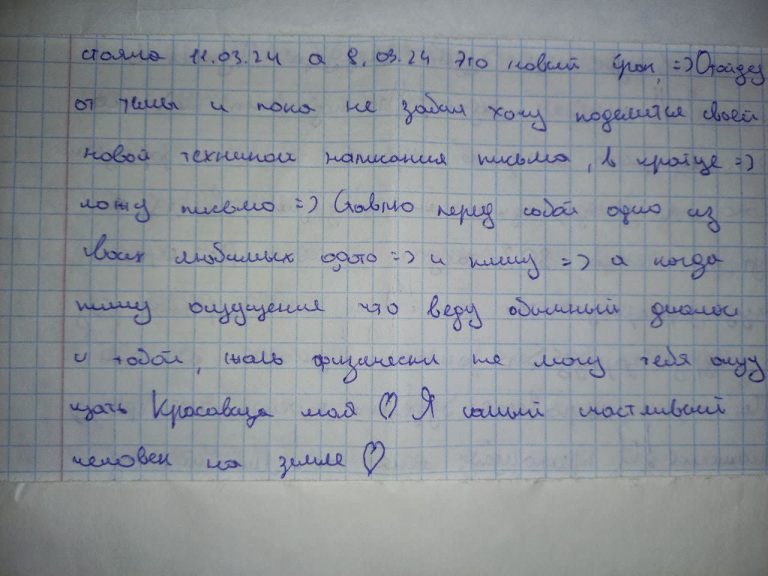 стояло 11.03.24 а 8.03.24 это новый срок, =) Отойду
от темы и пока не забыл хочу поделится своей
новой техникой написания письма, в кратце =)
ложу письмо =) Ставлю перед собой одно из
твоих любимых фото =) и пишу =) а когда
пишу ощущение что веду обычный диалог
с тобой, жаль физически не могу тебя ощу
щать Красавица моя ♡ Я самый счастливый
человек на земле ♡